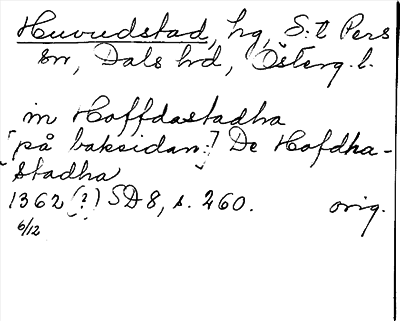 Huvudstad, hg, S:t Pers
sn, Dals hd, Österg.l.
in Hoffdastadha
[på baksidan:] De Hofdha-
stadha
1362 (?) SD 8, s. 260. orig.
6/12